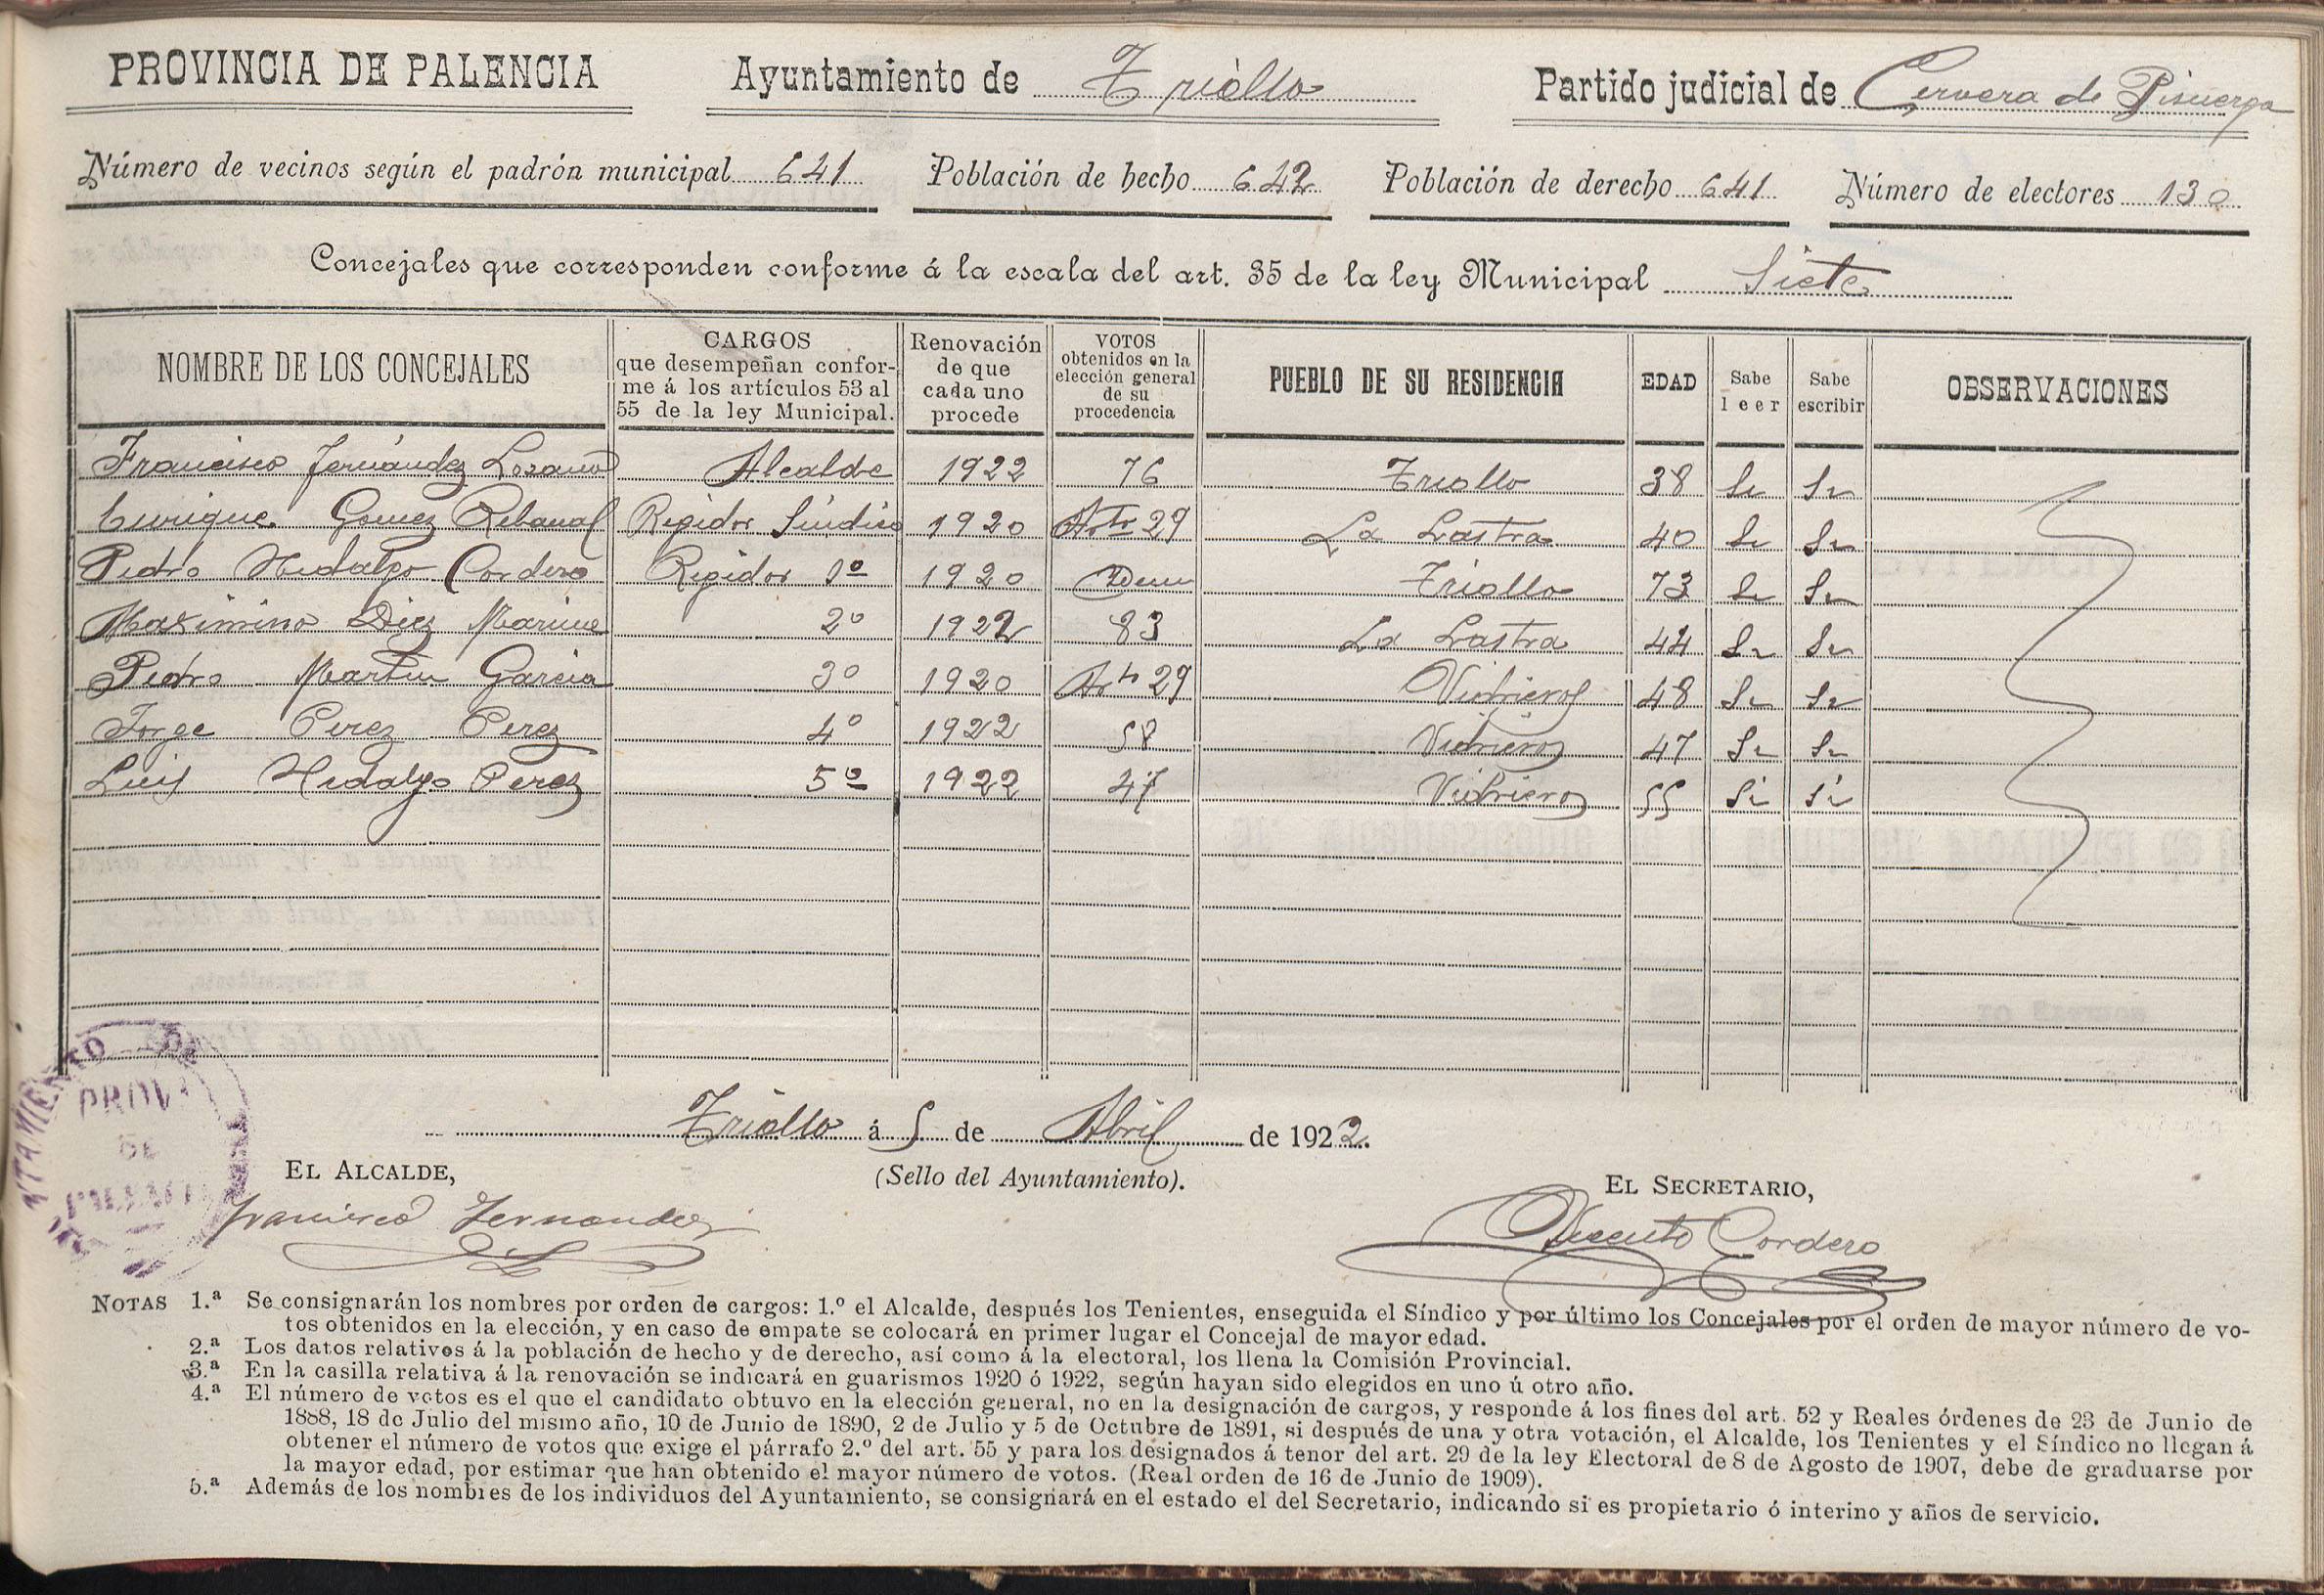 PROVINCIA DE PALENCIA Ayuntamiento de Triollo Partido judicial de Cervera de Pisuerga
Número de vecinos según el padrón municipal 641 Población de hecho 642 Población de derecho 641 Número de electores 130
Concejales que corresponden conforme á la escala del art. 35 de la ley Municipal Siete
NOMBRE DE LOS CONCEJALES
CARGOS
que desempeñan confor-
me á los artículos 53 al
55 de la ley Municipal.
Renovación
de que
cada uno
procede
VOTOS
obtenidos en la
elección general
de su
procedencia
PUEBLO DE SU RESIDENCIA
EDAD
Sabe
leer
Sabe
escribir
OBSERVACIONES
Francisco Fernández Lozano Alcalde 1922 76 Triollo 38 Si Si
Enrique Gomez Rebanal Regidor Síndico 1920 Arto 29 La Lastra 40 Si Si
Pedro Hidalgo Cordero Regidor 1º 1920 Idem Triollo 73 Si Si
Maximino Diez 2º 1922 83 La Lastra 44 Si Si
Pedro Martin Garcia 3º 1920 Arto 29 Vidrieros 48 Si Si
Jorge Perez Perez 4º 1922 58 Vidrieros 47 Si Si
Luis Hidalgo Perez 5º 1922 47 Vidrieros 55 Si Si
Triollo á 5 de Abril de 1922.
EL ALCALDE,
(Sello del Ayuntamiento).
EL SECRETARIO,
Francisco Fernandez
Cordero
PROV.
DE
NOTAS 1.ª Se consignarán los nombres por orden de cargos: 1.º el Alcalde, después los Tenientes, enseguida el Síndico y por último los Concejales por el orden de mayor número de vo-
tos obtenidos en la elección, y en caso de empate se colocará en primer lugar el Concejal de mayor edad.
2.ª Los datos relativos á la población de hecho y de derecho, así como á la electoral, los llena la Comisión Provincial.
3.ª En la casilla relativa á la renovación se indicará en guarismos 1920 ó 1922, según hayan sido elegidos en uno ú otro año.
4.ª El número de votos es el que el candidato obtuvo en la elección general, no en la designación de cargos, y responde á los fines del art. 52 y Reales órdenes de 23 de Junio de
1888, 18 de Julio del mismo año, 10 de Junio de 1890, 2 de Julio y 5 de Octubre de 1891, si después de una y otra votación, el Alcalde, los Tenientes y el Síndico no llegan á
obtener el número de votos que exige el párrafo 2.º del art. 55 y para los designados á tenor del art. 29 de la ley Electoral de 8 de Agosto de 1907, debe de graduarse por
la mayor edad, por estimar que han obtenido el mayor número de votos. (Real orden de 16 de Junio de 1909).
5.ª Además de los nombres de los individuos del Ayuntamiento, se consignará en el estado el del Secretario, indicando si es propietario ó interino y años de servicio.